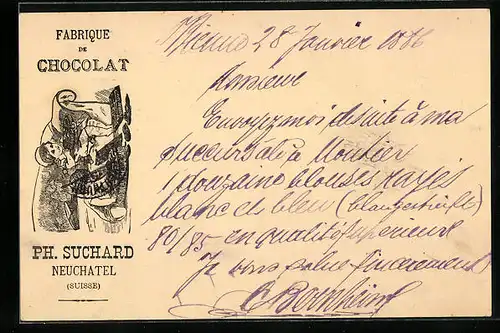 FABRIQUE
DE
CHOCOLAT
PH. SUCHARD
NEUCHATEL
(SUISSE)
28 Janvier 1886
Monsieur
Envoyez moi de suite à ma
succursale à Moutier
1 douzaine blouses rayés
blanc et bleu (blaugestreift)
80/85 en qualité supérieure
Je vous salue sincèrement